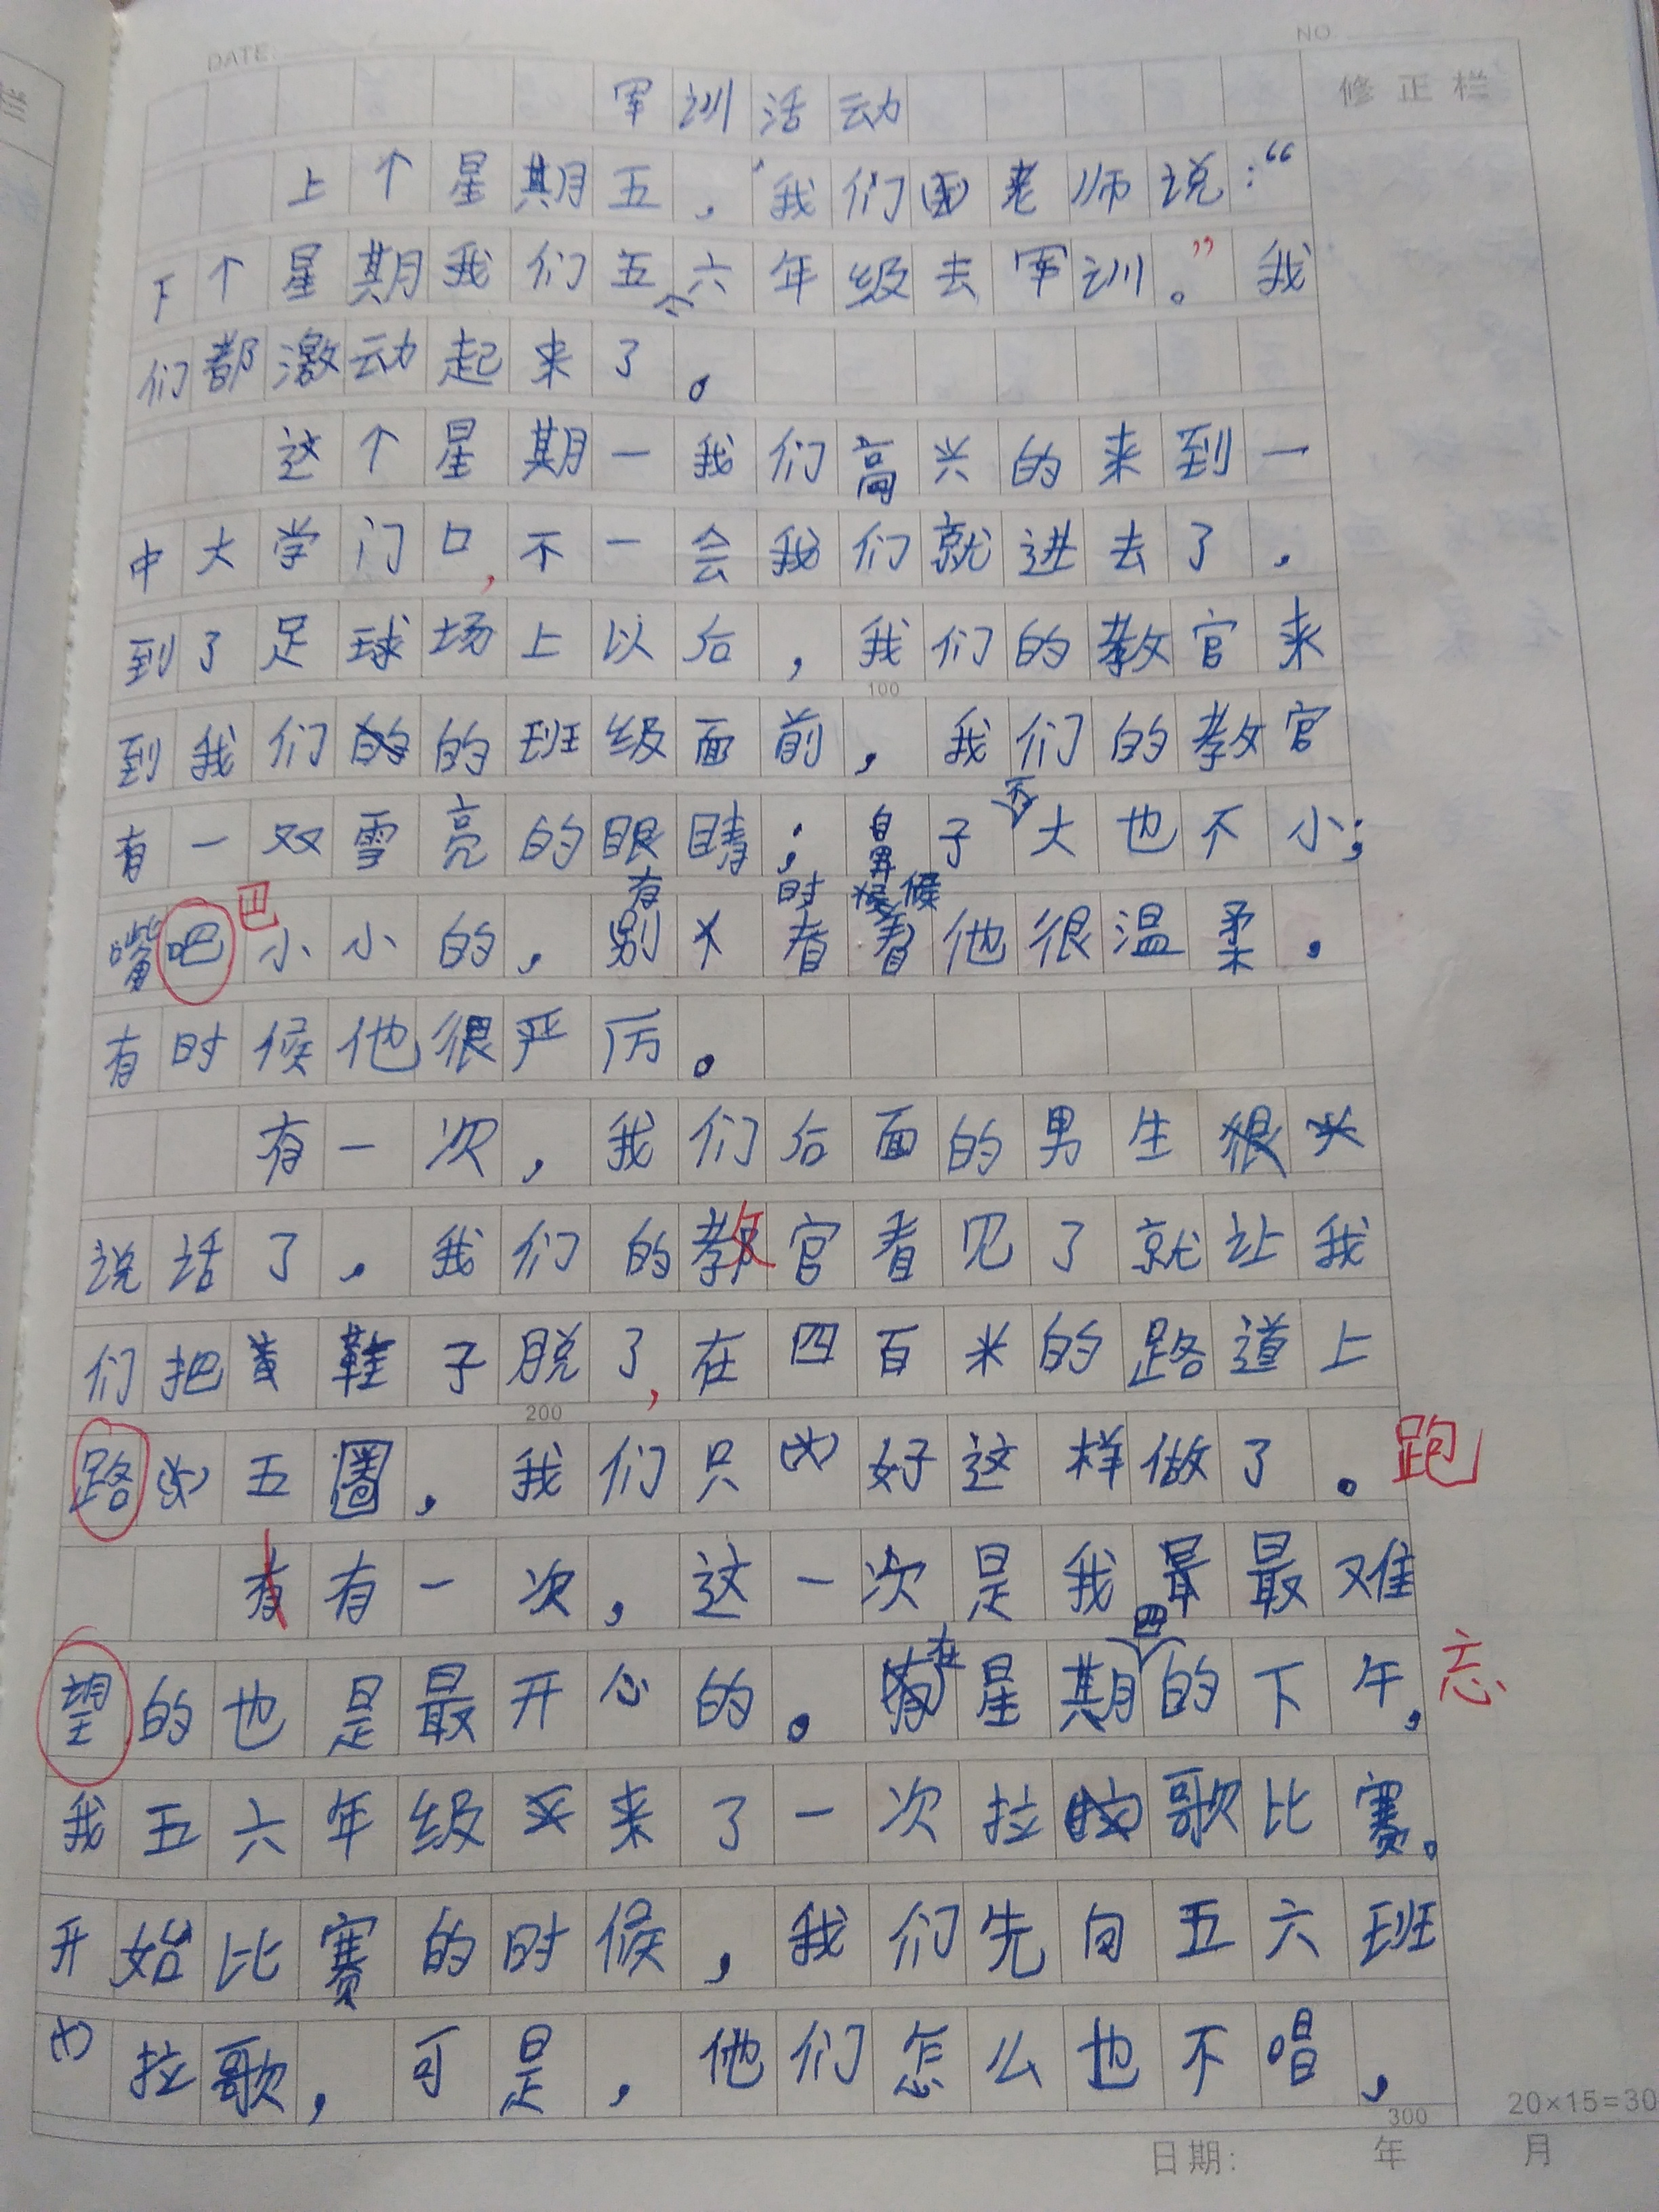 DATE
NO
修正栏
军训活动
上个星期五，我们田老师说：“
下个星期我们五、六年级去军训。”我
们都激动起来了。
这个星期一我们高兴的来到一
中大学门口，不一会我们就进去了，
到了足球场上以后，我们的教官来
100
到我们的班级面前，我们的教官
有一双雪亮的眼睛；鼻子不大也不小；
嘴吧小小的，有时候他很温柔，
巴
有时候他很严厉。
有一次，我们后面的男生
说话了，我们的教官看见了就让我
们把鞋子脱了，在四百米的路道上
200
路五圈，我们只好这样做了。
跑
有一次，这一次是我最难
望的也是最开心的。在星期四的下午，
忘
我五六年级来了一次拉歌比赛。
开始比赛的时候，我们先向五六班
拉歌，可是，他们怎么也不唱，
300
20×15=30
日期： 年 月